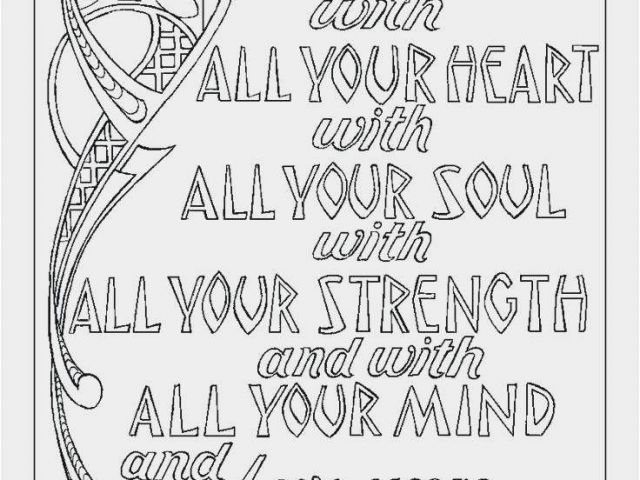 with
ALL YOUR HEART
with
ALL YOUR SOUL
with
ALL YOUR STRENGTH
and with
ALL YOUR MIND
and